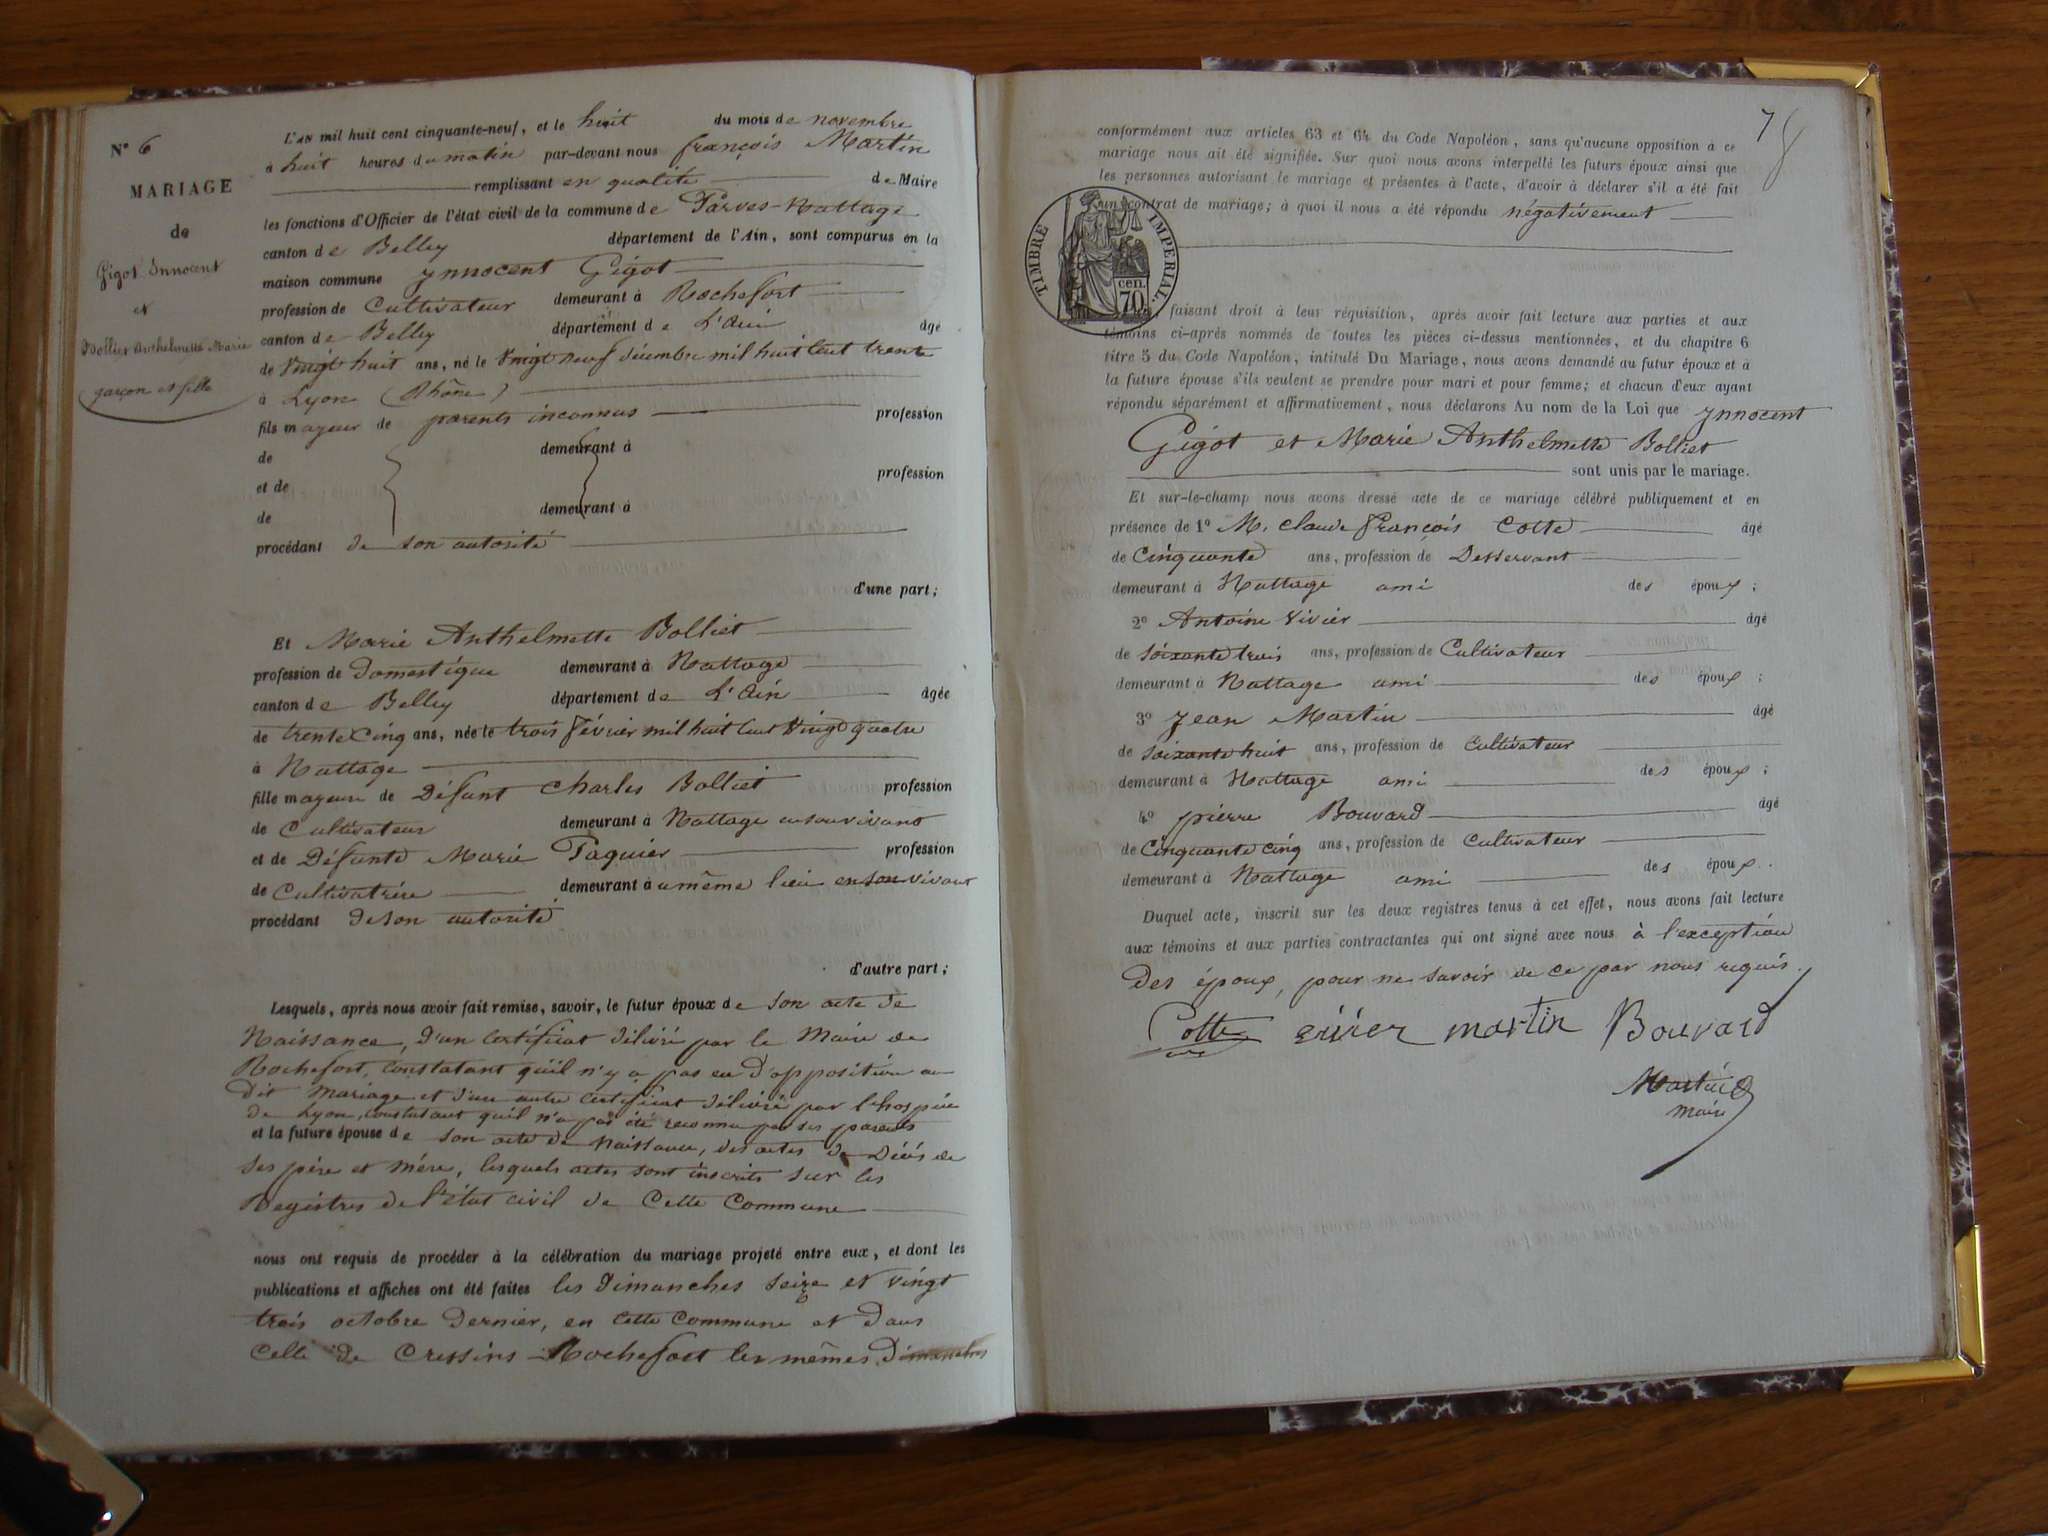 N° 6
MARIAGE
de
Gigot Innocent
et
Bolliet Anthelmette Marie
garçon et fille
L'AN mil huit cent cinquante-neuf, et le huit du mois de novembre
à huit heures du matin par-devant nous françois Martin
remplissant en qualité de Maire
les fonctions d'Officier de l'état civil de la commune de Parves-Nattage
canton de Belley département de l'Ain, sont comparus en la
maison commune ynnocent Gigot
profession de Cultivateur demeurant à Rochefort
canton de Belley département de L'Ain âgé
de Vingt huit ans, né le Vingt neuf décembre mil huit cent trente
à Lyon (Rhône)
fils majeur de parents inconnus profession
de demeurant à
et de profession
de demeurant à
procédant de son autorité
d'une part;
Et Marie Anthelmette Bolliet
profession de Domestique demeurant à Nattage
canton de Belley département de L'Ain âgée
de trente Cinq ans, née le trois février mil huit cent Vingt quatre
à Nattage
fille majeure de Défunt Charles Bolliet profession
de Cultivateur demeurant à Nattage en son vivant
et de Défunte Marie Paquier profession
de Cultivatrice demeurant à u même lieu en son vivant
procédant de son autorité
d'autre part;
Lesquels, après nous avoir fait remise, savoir, le futur époux de son acte de
Naissance, d'un certificat délivré par le Maire de
Rochefort, constatant qu'il n'y a pas eu d'opposition au
dit Mariage et d'un autre certificat délivré par l'hospice
de Lyon, constatant qu'il n'a pas été reconnu par ses parents
et la future épouse de son acte de Naissance, des actes de Décés de
ses père et mère, lesquels actes sont inscrits sur les
Registres de l'état civil de Cette Commune
nous ont requis de procéder à la célébration du mariage projeté entre eux, et dont les
publications et affiches ont été faites les Dimanches seize et vingt
trois octobre dernier, en cette Commune et dans
Celle de Cressins-Rochefort les mêmes Dimanches
78
conformément aux articles 63 et 64 du Code Napoléon, sans qu'aucune opposition à ce
mariage nous ait été signifiée. Sur quoi nous avons interpellé les futurs époux ainsi que
les personnes autorisant le mariage et présentes à l'acte, d'avoir à déclarer s'il a été fait
un contrat de mariage; à quoi il nous a été répondu négativement
TIMBRE IMPERIAL.
70 cen.
faisant droit à leur réquisition, après avoir fait lecture aux parties et aux
témoins ci-après nommés de toutes les pièces ci-dessus mentionnées, et du chapitre 6
titre 5 du Code Napoléon, intitulé Du Mariage, nous avons demandé au futur époux et à
la future épouse s'ils veulent se prendre pour mari et pour femme; et chacun d'eux ayant
répondu séparément et affirmativement, nous déclarons Au nom de la Loi que ynnocent
Gigot et Marie Anthelmette Bolliet
sont unis par le mariage.
Et sur-le-champ nous avons dressé acte de ce mariage célébré publiquement et en
présence de 1° M. Claude François Cotte âgé
de Cinquante ans, profession de Desservant
demeurant à Nattage ami des époux;
2° Antoine Vivier âgé
de Soixante trois ans, profession de Cultivateur
demeurant à Nattage ami des époux;
3° Jean Martin âgé
de Soixante huit ans, profession de Cultivateur
demeurant à Nattage ami des époux;
4° pierre Bouvard âgé
de Cinquante cinq ans, profession de Cultivateur
demeurant à Nattage ami des époux.
Duquel acte, inscrit sur les deux registres tenus à cet effet, nous avons fait lecture
aux témoins et aux parties contractantes qui ont signé avec nous à l'exception
Des époux, pour ne savoir de ce par nous requis.
Cotte vivier martin Bouvard
Martin
maire